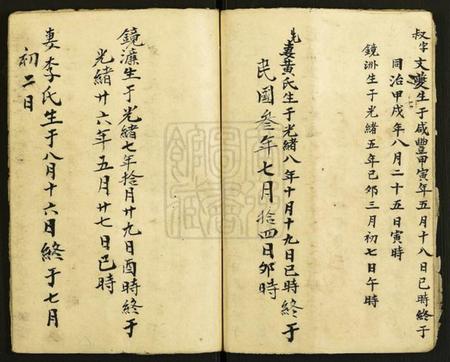 叔字文變生于咸豐甲寅年五月十八日巳時終于
同治甲戌年八月二十五日寅時
鏡洲生于光緒五年己卯三月初七日午時
妻黃氏生于光緒八年十月十九日巳時終于
民國叁年七月拾四日卯時
鏡濂生于光緒七年拾月廿九日酉時終于
光緒廿六年五月廿七日巳時
妻李氏生于八月十六日終于七月
初二日